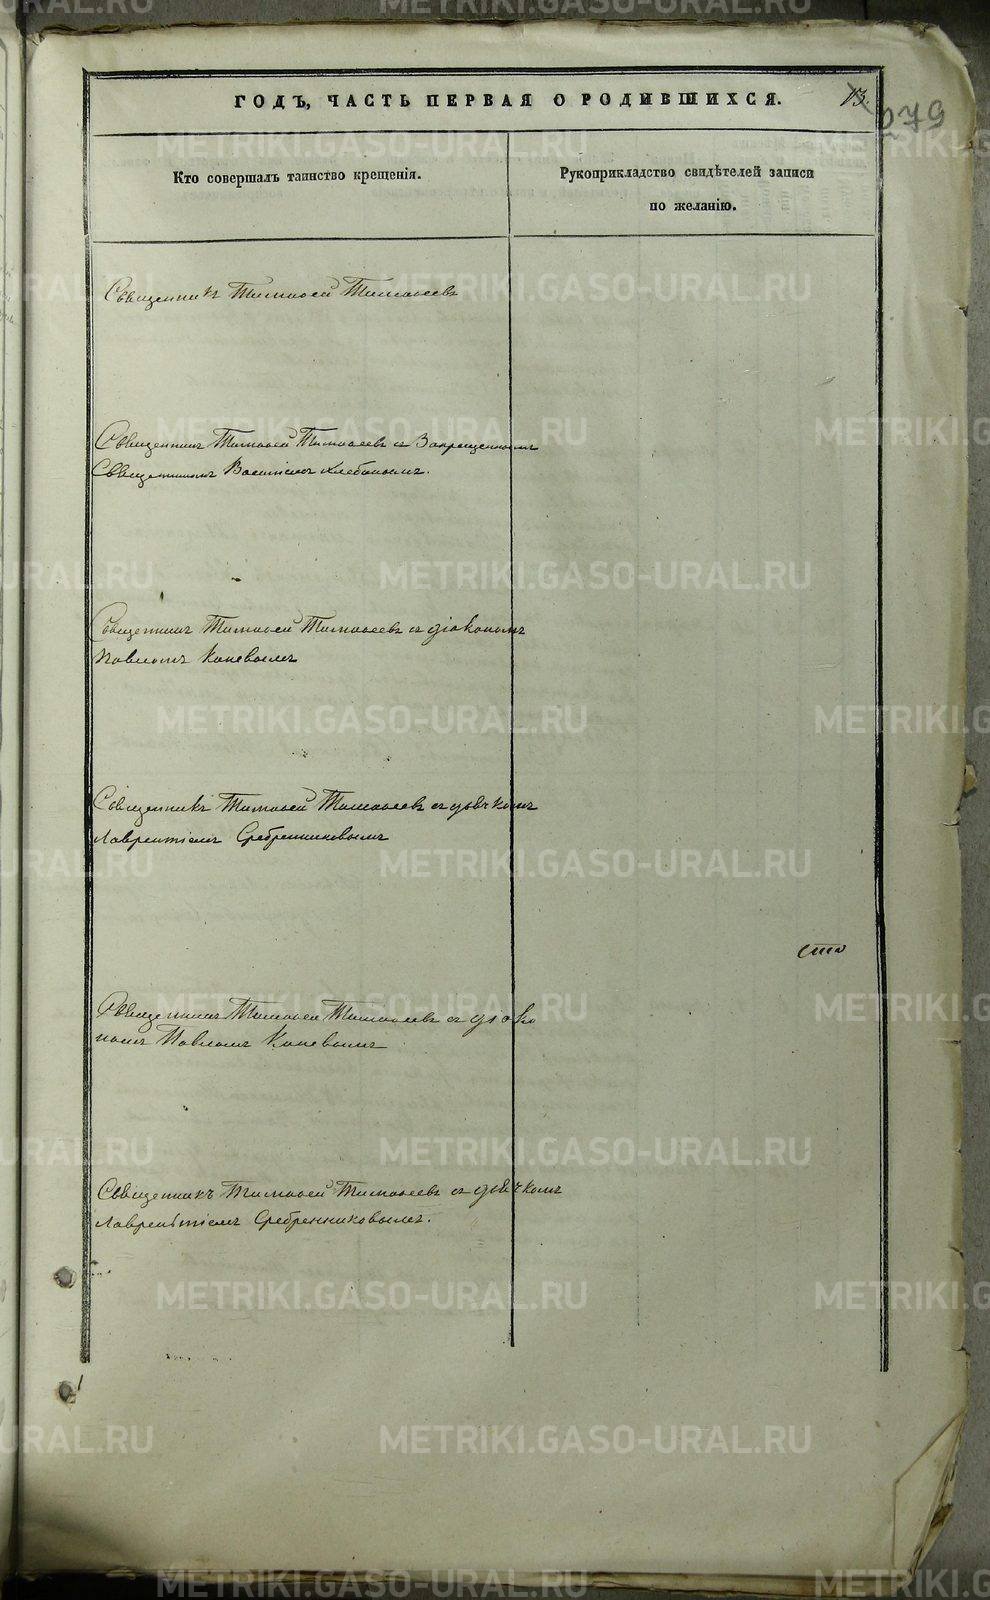 ГОДЪ, ЧАСТЬ ПЕРВАЯ О РОДИВШИХСЯ.
13.
279
Кто совершалъ таинство крещенія.
Рукоприкладство свидѣтелей записи
по желанію.
Священникъ Тимофей Тимофеевъ
Священникъ Тимофей Тимофеевъ съ Запрещеннымъ
Священникомъ Василіемъ Хлебановымъ.
Священникъ Тимофей Тимофеевъ съ діакономъ
Павломъ Каневымъ
Священникъ Тимофей Тимофеевъ съ дьячкомъ
Лаврентіемъ Сребренниковымъ
сто
Священникъ Тимофей Тимофеевъ съ діако
номъ Павломъ Каневымъ
Священникъ Тимофей Тимофеевъ съ дьячкомъ
Лаврентіемъ Сребренниковымъ.
METRIKI.GASO-URAL.RU